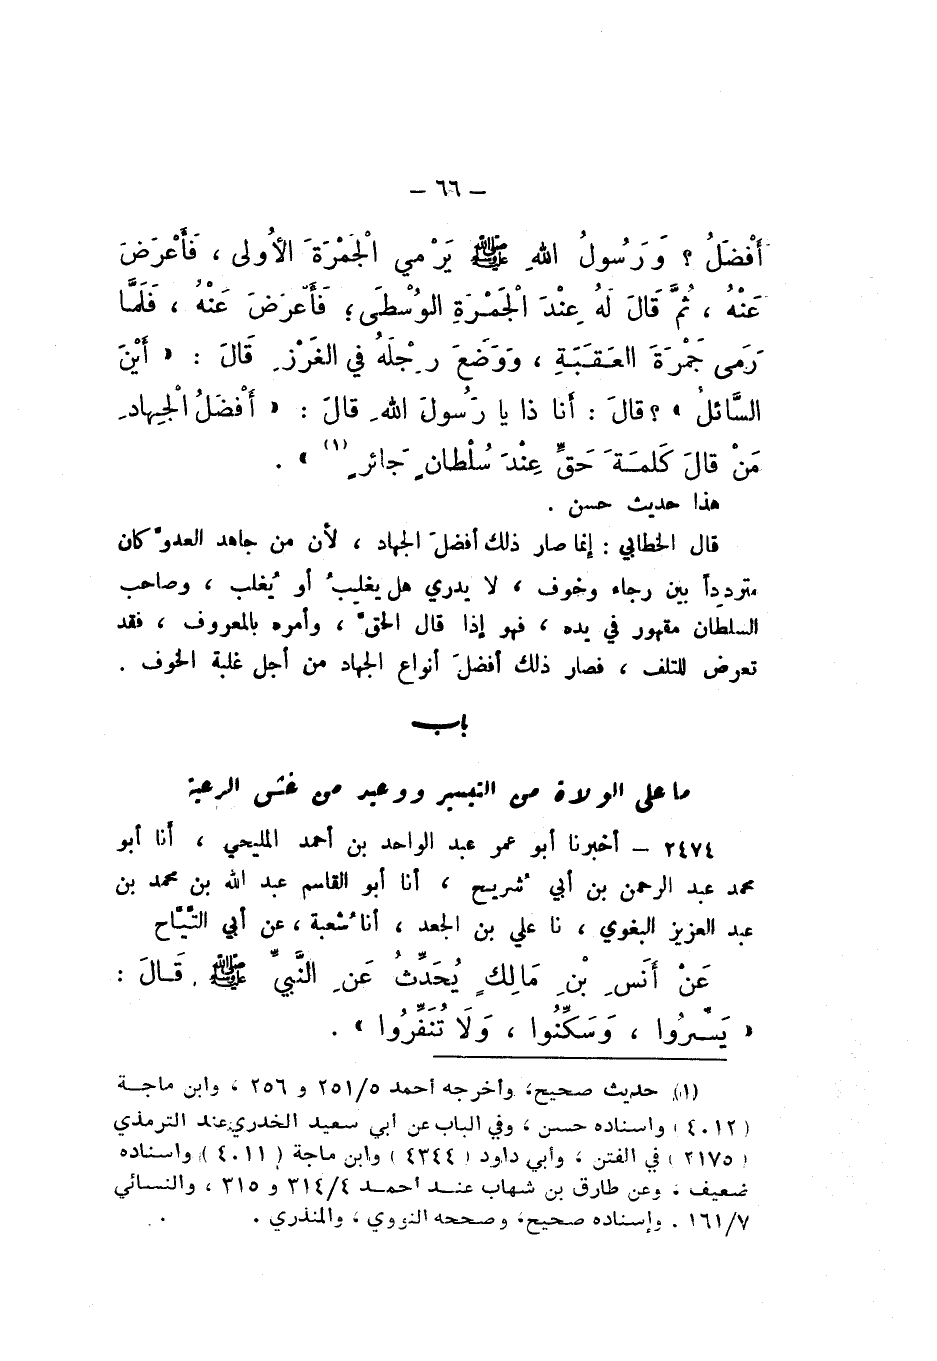 — ٦٦ —
أَفْضَلُ ؟ وَرَسُولُ اللهِ ﷺ يَرْمي الْجَمْرَةَ الأُولى ، فَأَعْرَضَ
عَنْهُ ، ثُمَّ قَالَ لَهُ عِنْدَ الْجَمْرَةِ الوُسْطَى؛ فَأَعْرَضَ عَنْهُ ، فَلَمَّا
رَمَى جَمْرَةَ العَقَبَةِ ، وَوَضَعَ رِجْلَهُ فِي الغَرْزِ قَالَ : « أَيْنَ
السَّائِلُ » ؟ قَالَ : أَنا ذا يا رَسُولَ اللهِ قالَ : « أَفْضَلُ الْجِهادِ
مَنْ قالَ كَلِمَةَ حَقٍّ عِنْدَ سُلْطانٍ جَائرٍ (١) » .
هذا حديث حسن .
قال الخطابي : إنما صار ذلك أفضلَ الجهاد ، لأن من جاهد العدوّ كان
متردداً بين رجاء وخوف ، لا يدري هل يغلِبُ أو يُغلب ، وصاحب
السلطان مقهور في يده ، فهو إذا قال الحقّ ، وأمره بالمعروف ، فقد
تعرض للتلف ، فصار ذلك أفضلَ أنواع الجهاد من أجل غلبة الخوف .
باب
ما على الولاة من التيسير ووعيد من غش الرعية
٢٤٧٤ — أخبرنا أبو عمر عبد الواحد بن أحمد المليحي ، أنا أبو
محمد عبد الرحمن بن أبي شُريح ، أنا أبو القاسم عبد الله بن محمد بن
عبد العزيز البغوي ، نا علي بن الجعد ، أنا شُعبة ، عن أبي التَّيَّاح
عَنْ أَنَسِ بْنِ مَالِكٍ يُحَدِّثُ عَنِ النَّبيِّ ﷺ قَالَ :
« يَسِّرُوا ، وَسَكِّنُوا ، وَلَا تُنَفِّرُوا » .
(١) حديث صحيح، وأخرجه أحمد ٢٥١/٥ و ٢٥٦ ، وابن ماجة
( ٤٠١٢ ) وإسناده حسن ، وفي الباب عن أبي سعيد الخدري عند الترمذي
( ٢١٧٥ ) في الفتن ، وأبي داود ( ٤٣٤٤ ) وابن ماجة ( ٤٠١١ ) وإسناده
ضعيف . وعن طارق بن شهاب عند أحمد ٣١٤/٤ و ٣١٥ ، والنسائي
١٦١/٧ . وإسناده صحيح، وصححه النووي ، والمنذري .